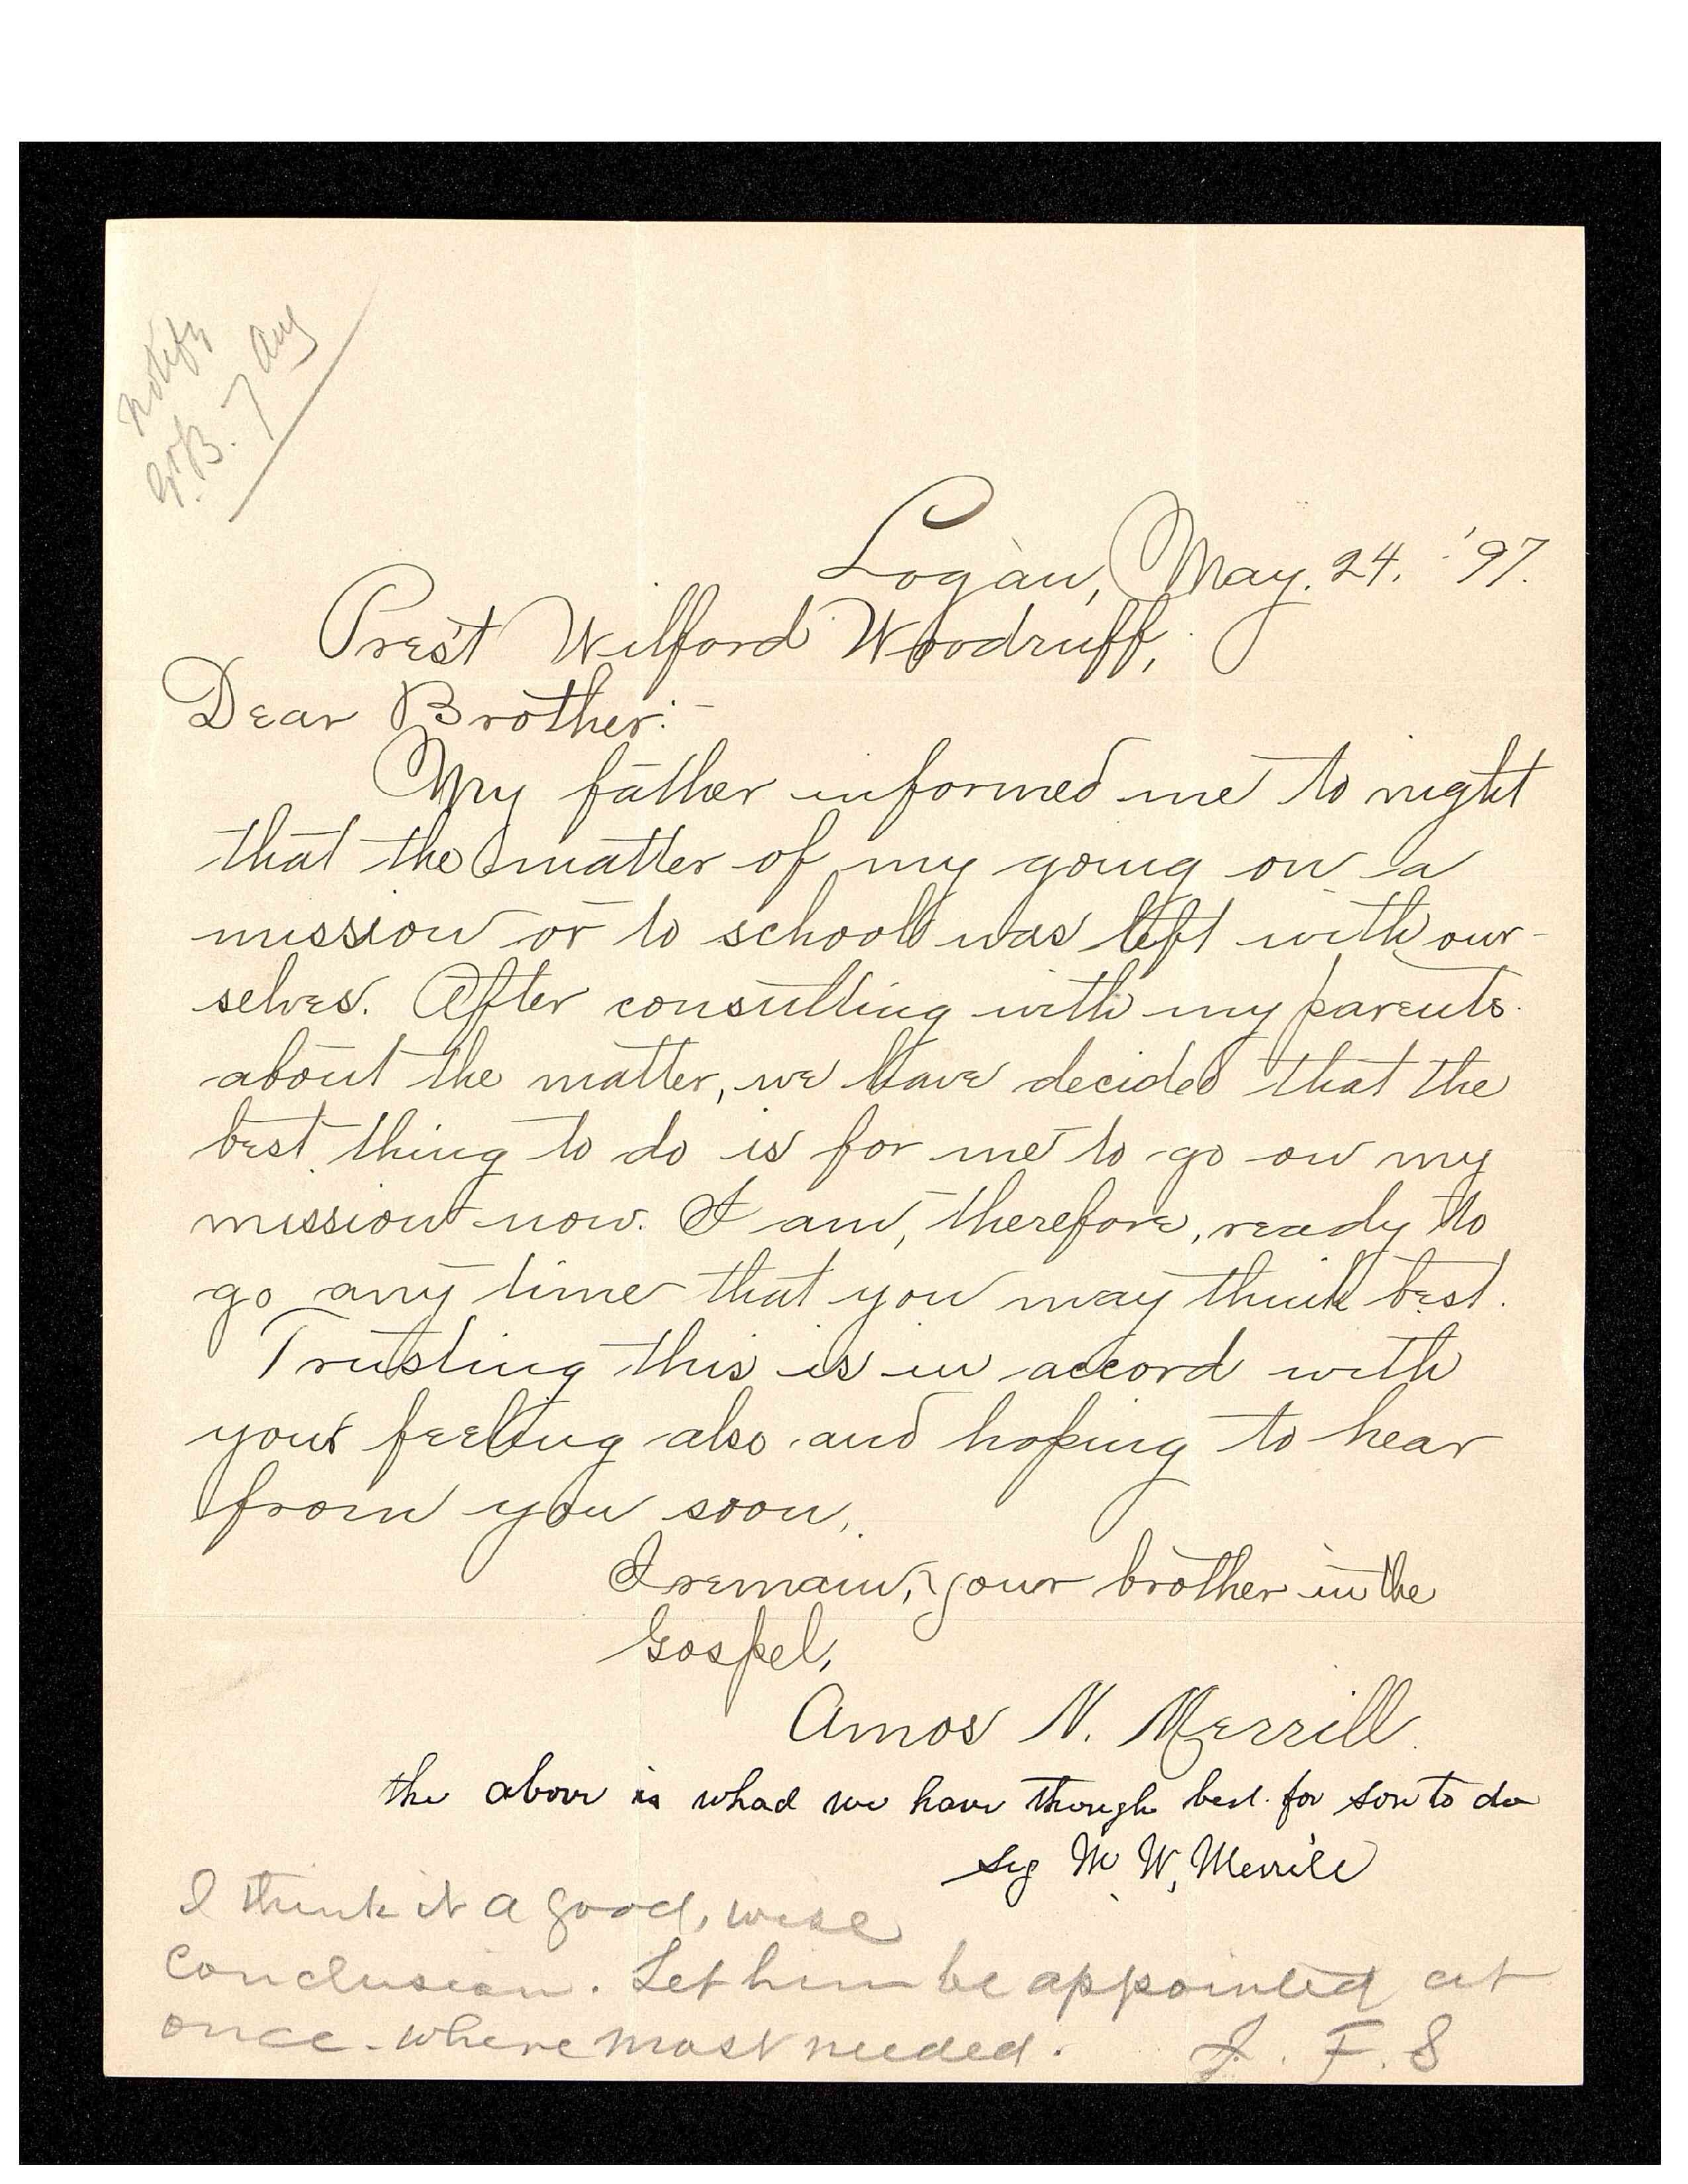 Notify
Gt. B. 7 Aug
Logan, May. 24. '97.
Prest Wilford Woodruff,
Dear Brother:-
My father informed me to night
that the matter of my going on a
mission or to school was left with our-
selves. After consulting with my parents
about the matter, we have decided that the
best thing to do is for me to go on my
mission now. I am, therefore, ready to
go any time that you may think best.
Trusting this is in accord with
your feeling also and hoping to hear
from you soon,
I remain, your brother in the
Gospel,
Amos N. Merrill.
the above is whad we have though best for son to do
M W, Merrill
I think it a good, wise
conclusion. Let him be appointed at
once. where most needed. J. F. S